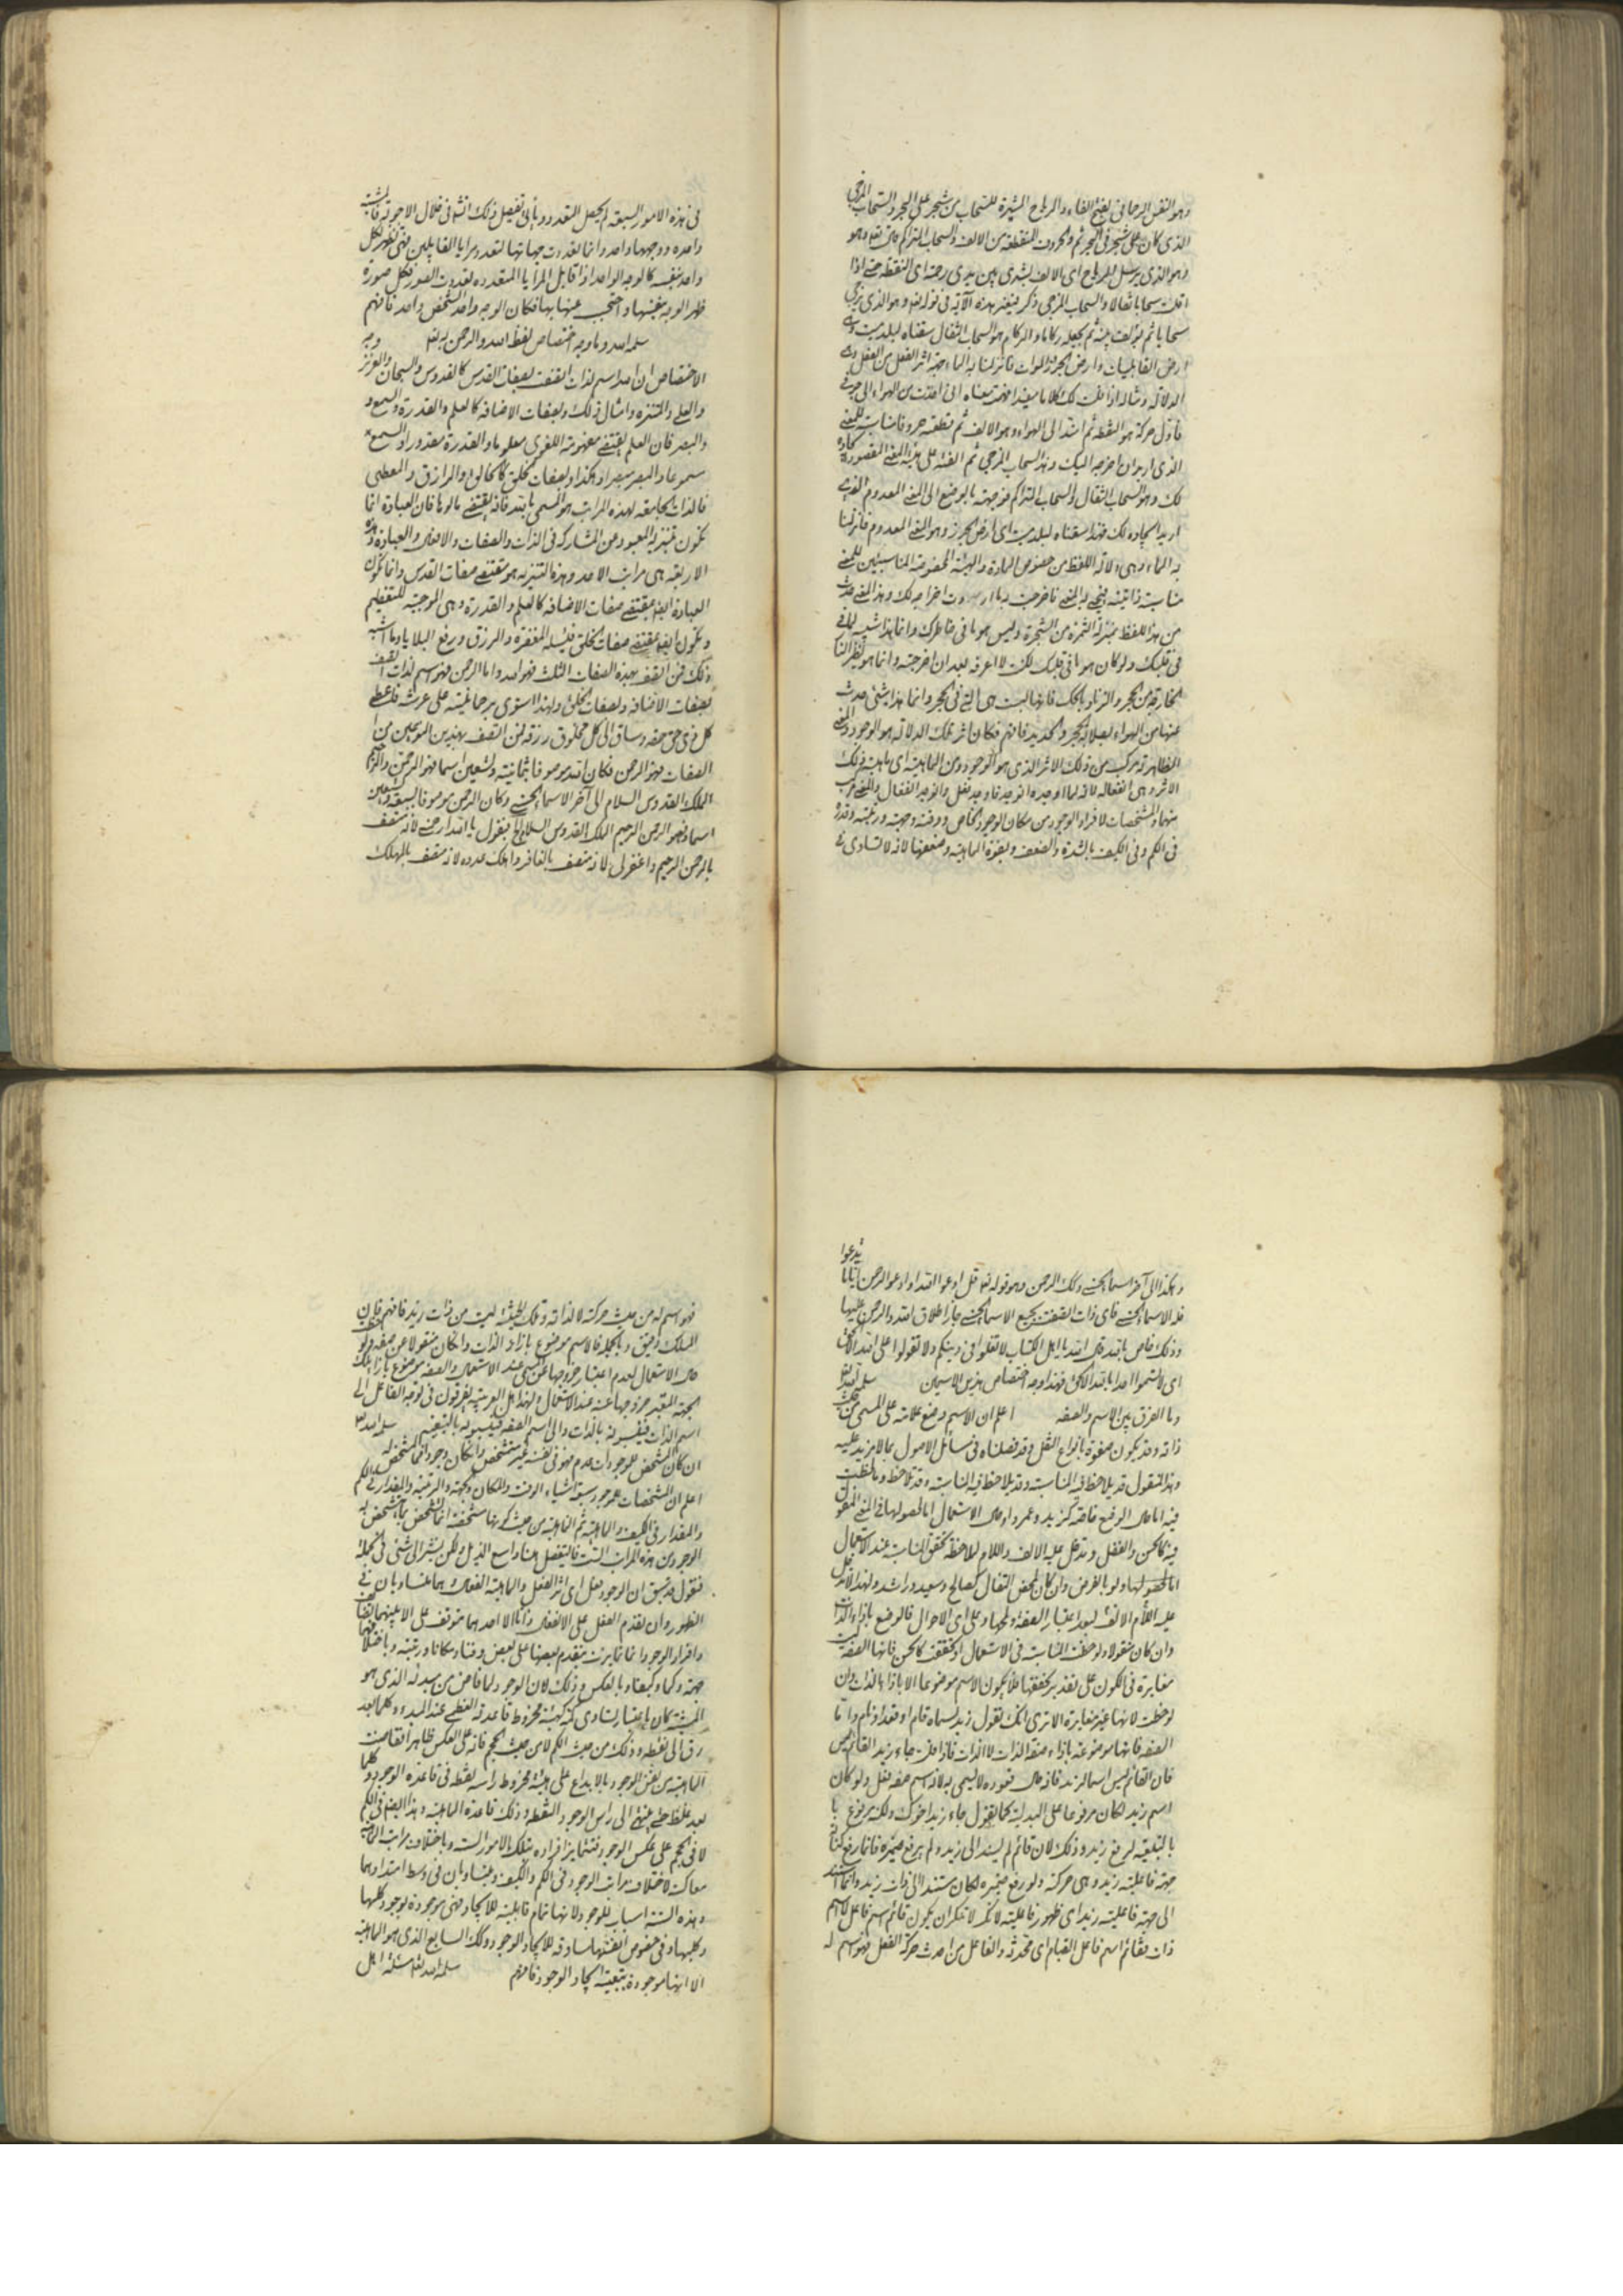 وهو النفس الرحماني بفتح الفاء والرياح المثيرة للسحاب من شجر على البحر والسحاب المزجي
الذي كان على شجر في البحر ثم والحروف المنقطعة من الالف والسحاب المتراكم قال تعالى وهو
وهو الذي يرسل الرياح اي الالف بشرى بين يدي رحمته اي النقطة حتى اذا
اقلت سحابا ثقالا والسحاب المزجي ذكر بغير هذه الآية في قوله تعالى وهو الذي يزجي
سحابا ثم يؤلف بينه ثم يجعله ركاما والركام هو السحاب الثقال سقناه لبلد ميت وهي
ارض القابليات وارض الجرز الموات فانزلنا به الماء
الدلالة ومثاله اذا قلت لك كلاما مفيدا فهمت معناه اني اخذت من الهواء الى جوفي
فاول حركة هو النقطة ثم امتد الى الهواء وهو الالف ثم قطعته حروفا مناسبة للمعنى
الذي اريد ان اخرجه اليك وهذا السحاب المزجي ثم الفته على هيئة المعنى المقصود
لك وهو السحاب الثقال والسحاب المتراكم فوجهته بالوضع الى المعنى المعدوم الذي
اريد ايجاده لك فهذا سقناه لبلد ميت اي ارض الجرز وهو المعنى المعدوم فانزلنا
به الماء وهي دلالة اللفظ من خصوص المادة والهيئة المخصوصة المناسبتين للمعنى
مناسبة ذاتية
من هذا اللفظ بمنزلة الثمرة من الشجرة وليس هو ما في خاطرك وانما هذا شبيه لما في
في قلبك ولو كان هو ما في قلبك لكنت لا اعرفه بعد ان اخرجته وانما هو نظير النار
الخارجة من الحجر والزناد بالحك فانها ليست هي التي في الحجر وانما هذا شيء حدث
عنها من الهواء بصلابة الحجر والحديد فافهم فكان اثر تلك الدلالة هو الوجود والمعنى
الظاهر تركب من ذلك الاثر الذي هو الوجود ومن الماهية اي ماهية ذلك
الاثر وهي انفعاله لانه لما اوجده انوجد فاوجد فعل وانوجد انفعال والمعنى مركب
منهما والمشخصات لافراد الوجود من مكان الوجود الخاص ووقته وجهته ورتبته وقدره
في الكم وفي الكيف بالشدة والضعف وبقوة الماهية وضعفها لانه لا تساوي
في هذه الامور السبعة لم يحصل التعدد ويأتي تفصيل ذلك انشا في خلال الاجوبة
واحدة ووجهها واحد وانما تعددت جهاتها لتعدد مرايا القابلين فهي تظهر لكل
واحد بنفسه كالوجه الواحد اذا قابل المرايا المتعددة تعددت الصور فكل صورة
ظهر الوجه بعينها واحتجب عنها بها فكان الوجه واحد الشخص واحد فافهم
سلمه الله وما وجه اختصاص لفظ الله والرحمن به تعالى وجه
الاختصاص ان الله اسم لذات اتصفت بصفات القدس كالقدوس والسبحان والعزيز
والعلي والمتنزه وامثال ذلك وبصفات الاضافة كالعلم والقدرة والسمع و
والبصر فان العلم يقتضي مفهومه اللغوي معلوما والقدرة مقدورا والسمع
مسموعا والبصر مبصرا وهكذا وبصفات الخلق كالخالق والرازق والمعطي
فالذات الجامعة لهذه المراتب هو المسمى بالله فانه يقتضي مألوها فان العبادة انما
تكون بتنزيه المعبود من المشاركة في الذات والصفات والافعال والعبادة وهذه
الاربعة هي مراتب الاحد وهذه التنزيه هو مقتضى صفات القدس وانما تكون
العبادة ايضا بمقتضى صفات الاضافة كالعلم والقدرة وهي الموجبة للتعظيم
وتكون ايضا بمقتضى صفات الخلق فيسئله المغفرة والرزق ورفع البلايا وما اشبه
ذلك فمن اتصف بهذه الصفات الثلث فهو الله واما الرحمن فهو اسم لذات اتصف
بصفات الاضافة وصفات الخلق ولهذا استوى برحمانيته على عرشه فاعطى
كل ذي حق حقه وساق الى كل مخلوق رزقه فمن اتصف بهذين النوعين من
الصفات فهو الرحمن فكان الله موصوفا بثمانية وتسعين اسما فهو الرحمن الرحيم
الملك القدوس السلام الى آخر الاسماء الحسنى وكان الرحمن موصوفا بسبعة وتسعين
اسما فهو الرحمن الرحيم الملك القدوس السلام الخ فتقول يا الله ارحمني لانه متصف
بالرحمن الرحيم واغفر لي لانه متصف بالغافر واهلك عدوه لانه متصف بالمهلك
وهكذا الى آخر اسمائه الحسنى وكك الرحمن وهو قوله تعالى قل ادعوا الله او ادعوا الرحمن ايا ما تدعوا
فله الاسماء الحسنى فاي ذات اتصفت بجميع الاسماء الحسنى جاز اطلاق الله والرحمن عليها
وذلك خاص بالله قال الله يا اهل الكتاب لا تغلوا في دينكم ولا تقولوا على الله الا الحق
اي لا تسموا احدا بالله الا الحق فهذا وجه اختصاص هذين الاسمين سلمه الله تعالى
وما الفرق بين الاسم والصفة اعلم ان الاسم وضع علامة على المسمى من حيث
ذاته وقد يكون صفوة بانواع النقل وقد فصلناه في مسائل الاصول بما لا مزيد عليه
وهذا المنقول قد يلاحظ فيه المناسبة وقد لا يلاحظ فيه المناسبة وقد تلاحظ وما لوحظت
فيه اما حال الوضع خاصة كزيد وعمرو او حال الاستعمال اما لحصولها في المعنى المنقول
فيه كالحسن والفضل وتدخل عليه الالف واللام لملاحظة تحقق المناسبة عند الاستعمال
اما لحصولها ولو بالفرض وان كان لمحض التفأل كصالح وسعيد وراشد ولهذا لا تدخل
عليه اللام الا لمح بعد اعتبار الصفة ولمحها وعلى اي الاحوال فالوضع بازاء الذات
وان كان منقولا ولوحظت المناسبة في الاستعمال وتحققت كالحسن فانها الصفة ليست
مغايرة في الكون على تقدير تحققها فلا يكون الاسم موضوعا الا بازاء الذات وان
لوحظت لانها غير مغايرة الا ترى انك تقول زيد لمسماه قام او قعد او نام واما
الصفة فانها موضوعة بازاء صفة الذات لا الذات فاذا قلت جاء زيد القائم ليس
فان القائم ليس اسما لزيد فانه حال قعوده لا يسمى به لانه اسم صفة فعل ولو كان
اسم زيد لكان مرفوعا على البدلية كما تقول جاء زيد اخوك ولكنه مرفوع با
بالتبعية لرفع زيد وذلك لان قائم لم يسند الى زيد ولم يرفع ضميره فانما رفع
جهة فاعلية زيد وهي حركته ولو رفع ضميره لكان مستندا الى ذات زيد وانما استند
الى جهة فاعلية زيد اي ظهور فاعليته لانكم لا تنكرون ان يكون قائم اسم فاعل لا اسم
ذات فقائم اسم فاعل القيام اي محدثه والفاعل من احدث حركة الفعل فهو اسم له
فهو اسم له من حيث حركته لا لذاته وتلك الحيثية ليست من ذات زيد فافهم فان
المسلك دقيق وبالجملة فالاسم موضوع بازاء الذات وان كان منقولا عن صفة ولو
حال الاستعمال لعدم اعتبار خروجها عن المسمى عند الاستعمال والصفة موضوع بازاء تلك
الجهة المعتبر خروجها عنه عند الاستعمال ولهذا اهل العربية يفرقون في توجه الفاعل الى
اسم الذات فينسبونه بالذات والى اسم الصفة فينسبونه بالتبعية سلمه الله تعالى
ان كان المشخص للوجود ذات عدم فهو في نفسه غير متشخص وان كان وجود
اعلم ان المشخصات للوجود سبعة اشياء الوقت والمكان والجهة والرتبة والمقدار في الكم
والمقدار في الكيف والماهية ثم الماهية من حيث كونها مشخصة انما تتشخص بما تشخص به
الوجود من هذه المراتب الست فالتفصيل هنا واسع الذيل ولكن نشير الى شيء في الجملة
فنقول قد سبق ان الوجود فعل اي اثر الفعل والماهية انفعال وهما متساويان في
الظهور وان تقدم الفعل على الانفعال ذاتا الا ان احدهما متوقف على الآخر
وافراد الوجود انما تمايزت بتقدم بعضها على بعض وقتا ومكانا ورتبة وباختلافها
جهة وكما وكيفا وبالعكس وذلك لان الوجود لما فاض من مبدئه الذي هو
المشيئة كان باعتبار تساوي كمه كهيئة مخروط قاعدته العظمى عند المبدء وكلما بعد
رق الى نقطة وذلك من حيث الكم لا من حيث الحجم فانه على العكس ظاهرا فقامت
الماهية من نفس الوجود بالابداع على هيئة مخروط رأسه نقطة في قاعدة الوجود وكلما
بعد غلظ حتى ينتهي الى رأس الوجود النقطة وذلك قاعدة الماهية وهذا ايضا في الكم
لا في الحجم على عكس الوجود فتتمايز افراده بتلك الامور الستة وباختلاف مراتب الماهية
معاكسة لاختلاف مراتب الوجود في الكم والكيف ويتساويان في وسط امتدادهما
وهذه الستة اسباب للوجود لانها تمام قابليته للايجاد فهي موجودة بوجود كلها
وكلها في خصوص انفسها مساوقة للايجاد والوجود وكك السابع الذي هو الماهية
الا انها موجودة بتبعية ايجاد الوجود فافهم سلمه الله تعالى مسئلة اهل